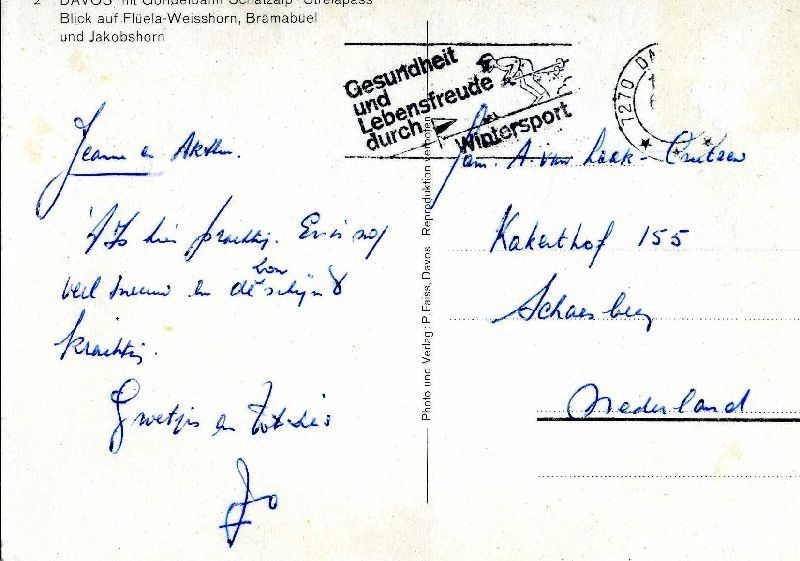 2 DAVOS mit Gondelbahn Schatzalp-Strelapass
Blick auf Flüela-Weisshorn, Brämabüel
und Jakobshorn
Gesundheit
und
Lebensfreude
durch
Wintersport
7270 DA
Jeanne en Arthur.
't Is hier prachtig. Er is nog
veel sneeuw en de zon schijnt
krachtig.
Groetjes en tot ziens
Jo
Fam. A. van Laak-Crutzen
Kakerthof 155
Schaesberg
Nederland
Photo und Verlag: P. Faiss, Davos Reproduktion verboten